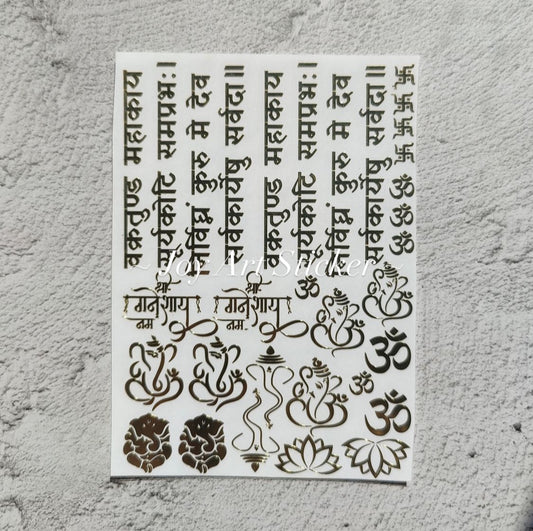 वक्रतुण्ड महाकाय
सूर्यकोटि समप्रभ:।
निर्विघ्नं कुरु मे देव
सर्वकार्येषु सर्वदा॥
वक्रतुण्ड महाकाय
सूर्यकोटि समप्रभ:।
निर्विघ्नं कुरु मे देव
सर्वकार्येषु सर्वदा॥
ॐ ॐ ॐ
~ Joy Art Sticker
श्री
गनेशाय
नम
श्री
गनेशाय
नम
ॐ
ॐ
ॐ
ॐ